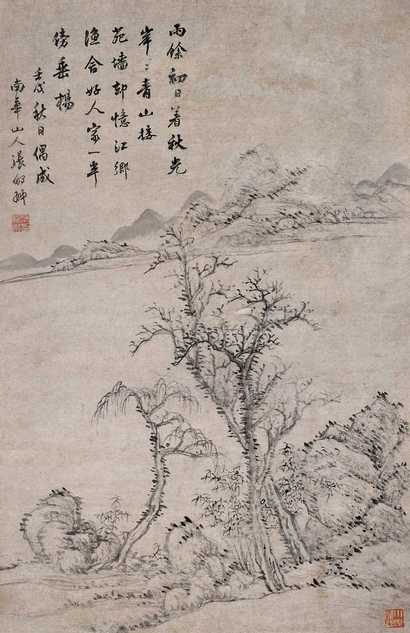 雨餘初日着秋光
岸〻青山接
苑墙却憶江鄉
漁舍好人家一半
傍垂楊
壬戌秋日偶成
南華山人張鵬翀